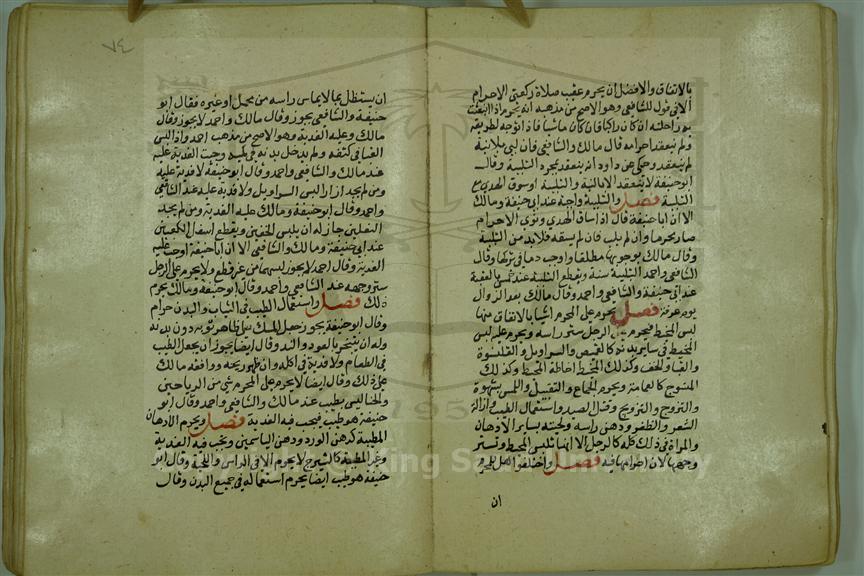 بالاتفاق والافضل ان يحرم عقب صلاة ركعتي الاحرام
الا في قول للشافعي وهو الاصح من مذهبه انه يحرم اذا انبعثت
به راحلته ان كان راكبا فان كان ماشيا فاذا توجه لطريقه
ولم ينعقد احرامه قال مالك والشافعي فان لبى بلا نية
لم ينعقد وحكي عن داود انه ينعقد بمجرد التلبية وقال
ابو حنيفة لا ينعقد الا بالنية والتلبية او سوق الهدي مع
النية فصل والتلبية واجبة عند ابي حنيفة ومالك
الا ان ابا حنيفة قال اذا ساق الهدي ونوى الاحرام
صار محرما وان لم يلب فان لم يسقه فلا بد من التلبية
وقال مالك بوجوبها مطلقا واوجب دما في تركها وقال
الشافعي واحمد التلبية سنة ويقطع التلبية عند رمي جمرة العقبة
عند ابي حنيفة والشافعي واحمد وقال مالك بعد الزوال
يوم عرفة فصل يحرم على المحرم اشيا بالاتفاق منها
لبس المخيط فيحرم على الرجل ستر راسه ويحرم عليه لبس
المخيط في ساير بدنه كالقميص والسراويل والقلنسوة
والقبا والخف وكذلك المخيط احاطة المخيط وكذلك
المنسوج كالعمامة ويحرم الجماع والتقبيل واللمس بشهوة
والتزوج والتزويج وقتل الصيد واستعمال الطيب وازالة
الشعر والظفر ودهن راسه ولحيته بساير الادهان
والمراة في ذلك كله كالرجل الا انها تلبس المخيط وتستر
وجهها لان احرامها فيه فصل واختلفوا هل للمحرم
ان
٧٤
ان يستظل بما لا يماس راسه من محمل او غيره فقال ابو
حنيفة والشافعي يجوز وقال مالك واحمد لا يجوز وقال
مالك وعليه الفدية وهو الاصح من مذهب احمد واذا لبس
القبا في كتفه ولم يدخل يديه في كميه وجبت الفدية عليه
عند مالك والشافعي واحمد وقال ابو حنيفة لا فدية عليه
ومن لم يجد ازارا لبس السراويل ولا فدية عليه عند الشافعي
واحمد وقال ابو حنيفة ومالك عليه الفدية ومن لم يجد
النعلين جاز له ان يلبس الخفين ويقطع اسفل الكعبين
عند ابي حنيفة ومالك والشافعي الا ان ابا حنيفة اوجب عليه
الفدية وقال احمد لا يجوز لبسهما من غير قطع ولا يحرم على الرجل
ستر وجهه عند الشافعي واحمد وقال ابو حنيفة ومالك يحرم
ذلك فصل واستعمال الطيب في الثياب والبدن حرام
وقال ابو حنيفة يجوز جعل المسك على ظاهر ثوبه دون بدنه
وله ان يتبخر بالعود والند وقال ايضا يجوز ان يجعل الطيب
في الطعام ولا فدية في اكله وان ظهر ريحه ووافقه مالك
على ذلك وقال ايضا لا يحرم على المحرم شي من الرياحين
والحنا ليس بطيب عند مالك والشافعي واحمد وقال ابو
حنيفة هو طيب فيجب فيه الفدية فصل ويحرم الادهان
المطيبة كدهن الورد ودهن الياسمين وتجب فيه الفدية
وغير المطيبة كالشيرج لا يحرم الا في الراس واللحية وقال ابو
حنيفة هو طيب ايضا يحرم استعماله في جميع البدن وقال